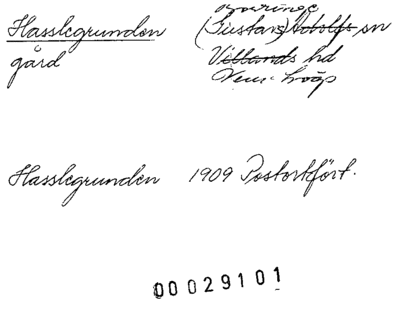 Hasslegrunden
gård
(Gustav) Adolfs sn
Villands hd
Hasslegrunden 1909 Postortfört.
00029101